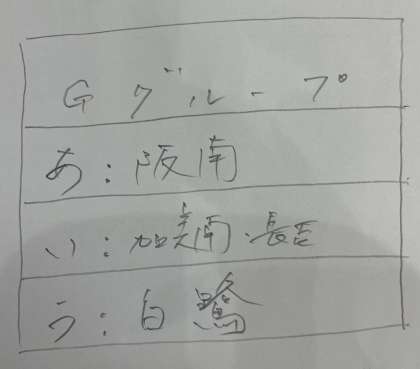 Gグループ
あ:阪南
い:加美南・長吉
う:白鷺